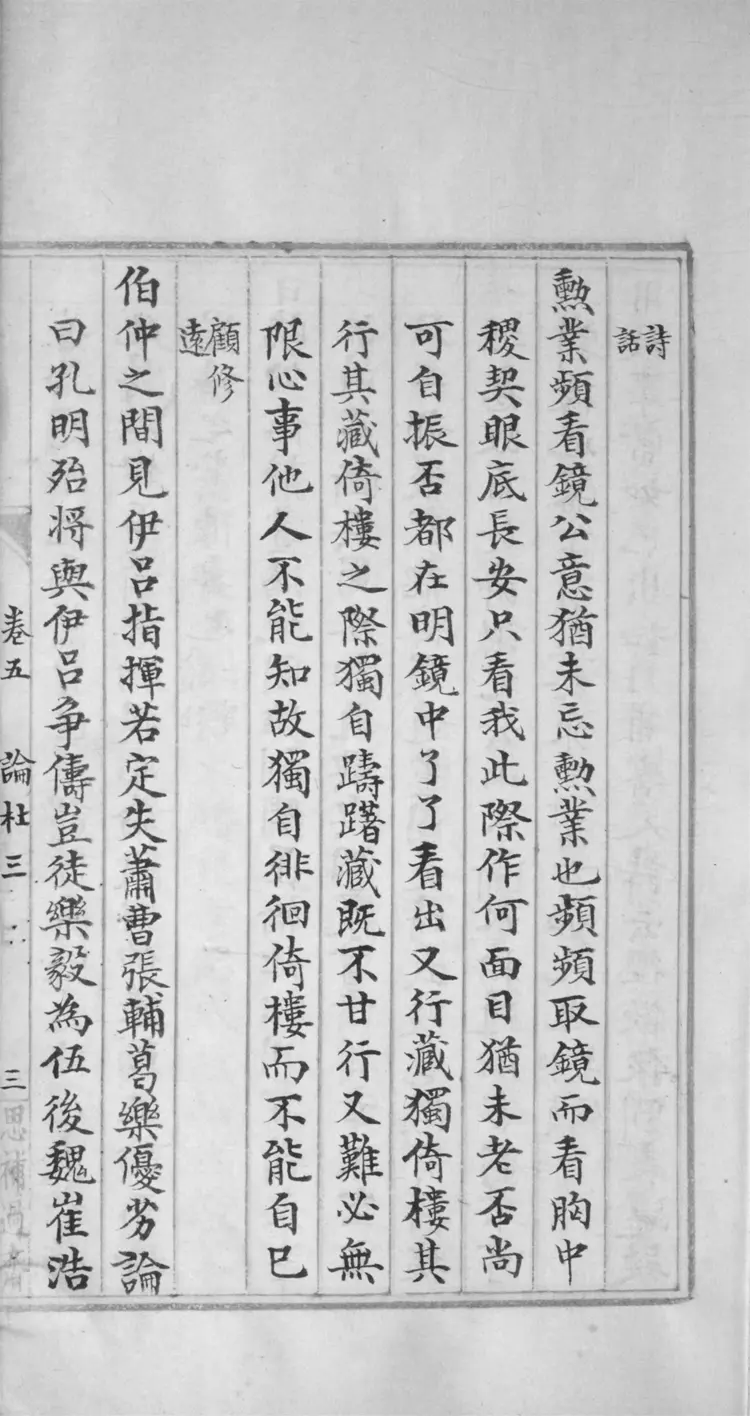 詩
話
勲業頻看鏡公意猶未忘勲業也頻頻取鏡而看胸中
稷契眼底長安只看我此際作何面目猶未老否尚
可自振否都在明鏡中了了看出又行藏獨倚樓其
行其藏倚樓之際獨自躊躇藏既不甘行又難必無
限心事他人不能知故獨自徘徊倚樓而不能自已
顧修
遠
伯仲之間見伊呂指揮若定失蕭曹張輔葛樂優劣論
曰孔明殆將與伊呂争儔豈徒樂毅為伍後魏崔浩
卷五 論杜三 三 思補過齋